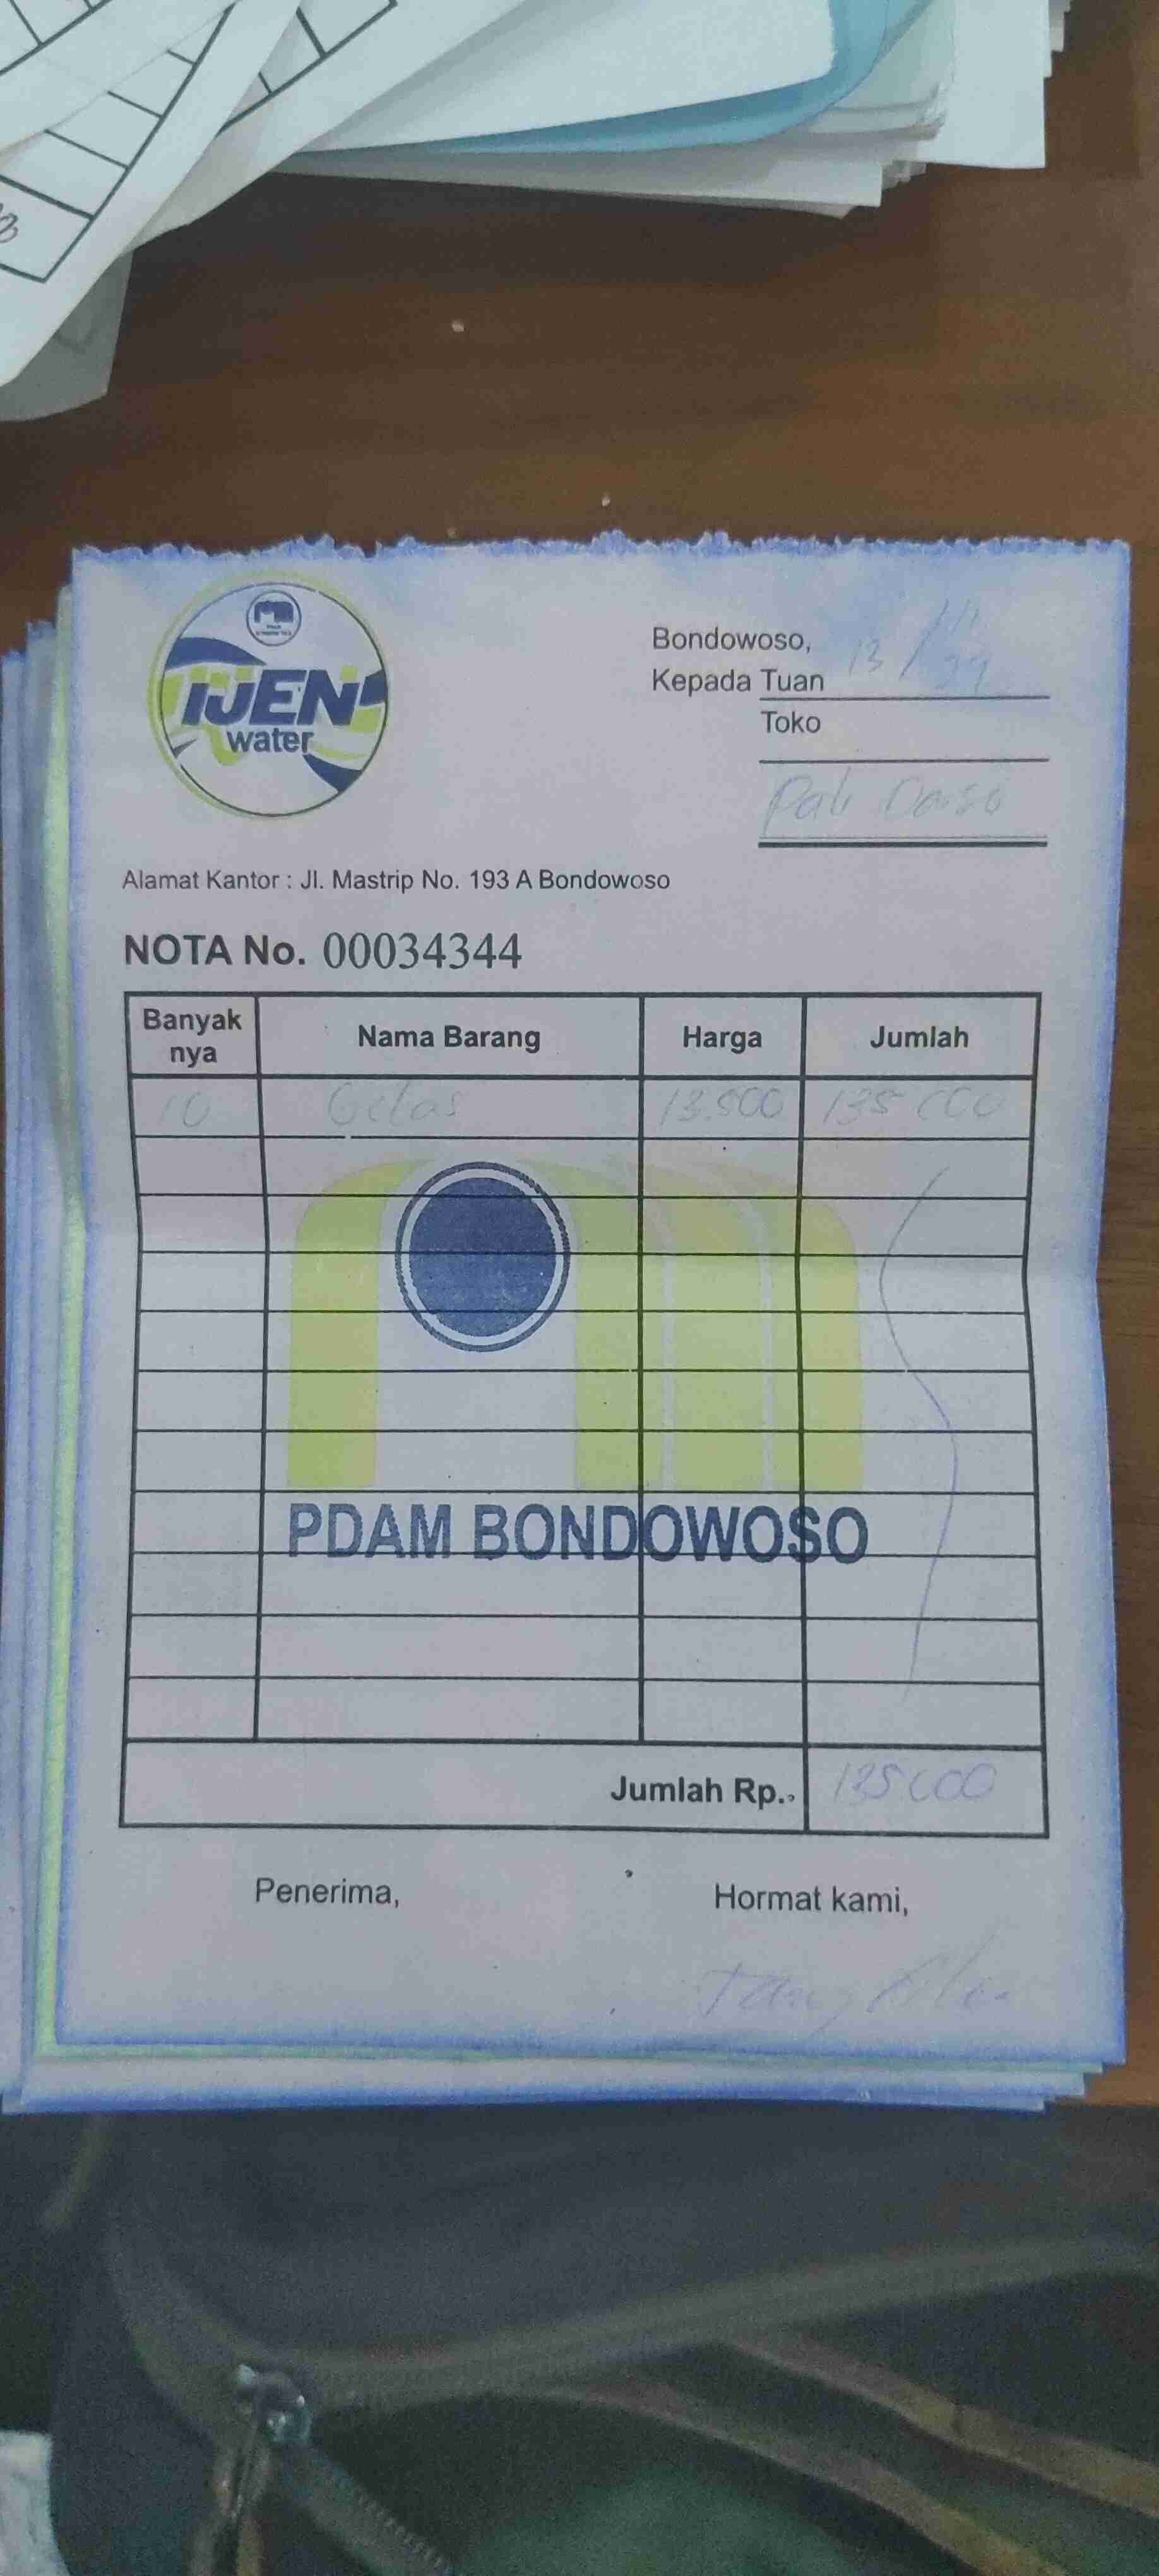 IJEN
water
Bondowoso, 13/11
Kepada Tuan
Toko
Pak
Alamat Kantor : Jl. Mastrip No. 193 A Bondowoso
NOTA No. 00034344
Banyak nya Nama Barang Harga Jumlah
10 Gelas 13.500 135 000
PDAM BONDOWOSO
Jumlah Rp. 135 000
Penerima, Hormat kami,